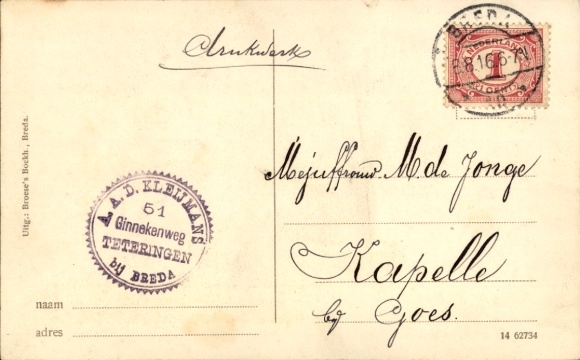 Drukwerk
BREDA
8.8.16.6-7N
NEDERLAND
1
Mejuffrouw M. de Jonge
Kapelle
bij Goes.
A.D. KLEIJMANS
51
Ginnekenweg
TETERINGEN
bij BREDA
Uitg.: Broese's Boekh., Breda.
naam
adres
14 62734